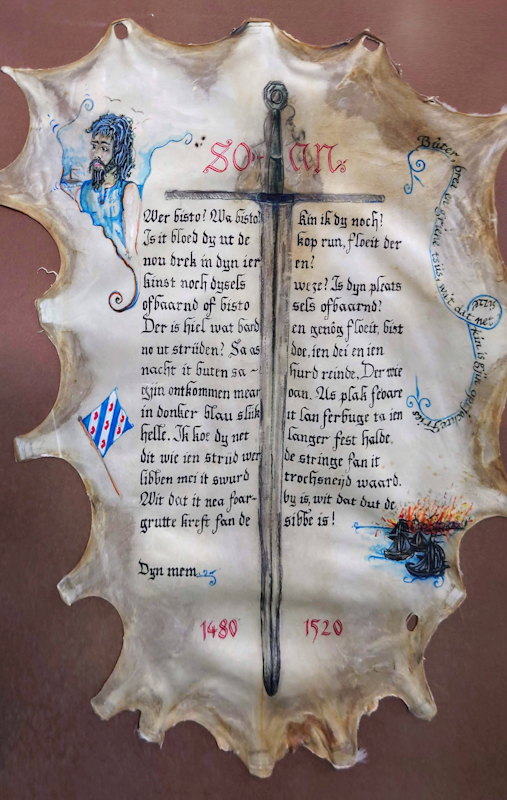 SO-AN.
Wer bisto? Wa bisto? kin ik dy noch!
Is it bloed dy ut de kop run, floeit der
nou drek in dyn ier en?
kinst noch dysels weze? Is dyn pleats
ofbaarnd of bisto sels ofbaarnd?
Der is hiel wat bard en genôg floeit, bist
no ut strüden? Sa as doe, ien dei en ien
nacht it buten sa ~ hurd reinde. Der wie
gjin ontkommen mear oan. As plak feoare
in donker blau ut lan ferbuge ta ien
helle. Ik koe dy net langer fest halde,
dit wie ien striid wer de stringe fan it
libben mei it swurd trochsneijd waard.
Wit dat it nea foar- by is, wit dat dut de
grutte kreft fan de sibbe is!
Dyn mem.
1480 1520
Bûter, brea en griene tsiis, wat dat net sizze kin is gjin oprjochte Fries